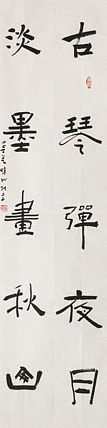 古琴彈夜月
淡墨畫秋山